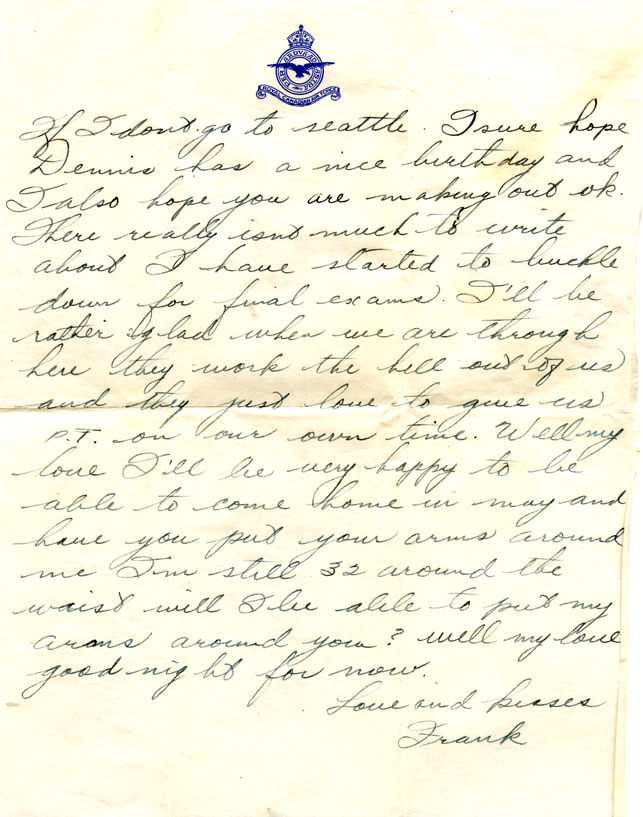 PER ARDUA AD ASTRA
ROYAL CANADIAN AIR FORCE
If I dont go to seattle. I sure hope
Dennis has a nice birthday and
I also hope you are making out ok.
There really isnt much to write
about I have started to buckle
down for final exams. I'll be
rather glad when we are through
here they work the hell out of us
and they just love to give us
P.T. on our own time. Well my
love I'll be very happy to be
able to come home in may and
have you put your arms around
me I'm still 32 around the
waist will I be able to put my
arms around you? well my love
good night for now.
Love and kisses
Frank